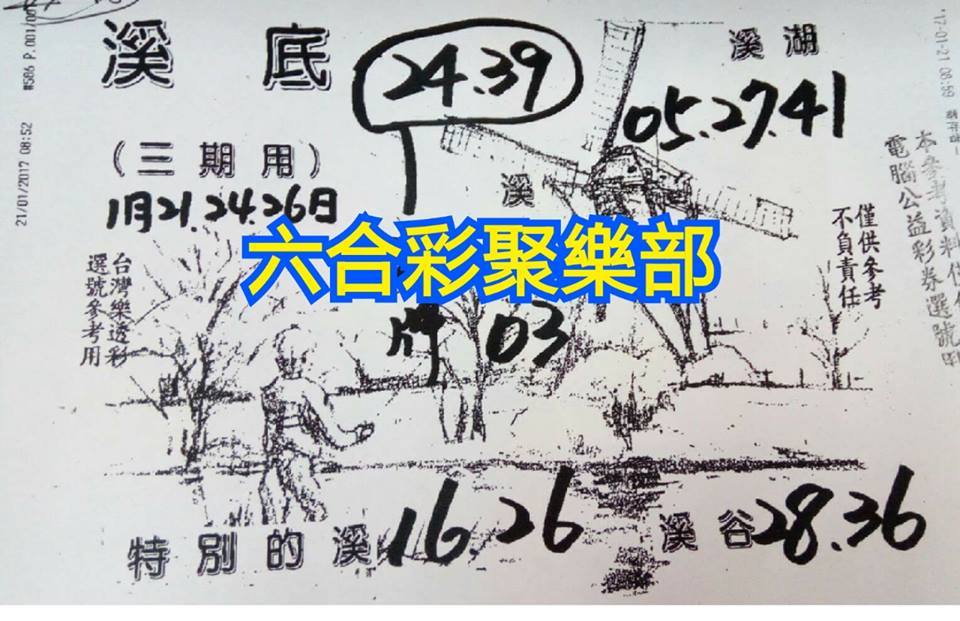 #586 P.001/001
21/01/2017 08:52
溪底
24.39
溪湖
05.27.41
(三期用)
1月21.24.26日
溪
僅供參考
不負責任
電腦公益彩券選號
台灣樂透彩
選號參考用
六合彩聚樂部
牌 03
特別的溪 16.26
溪谷 28.36